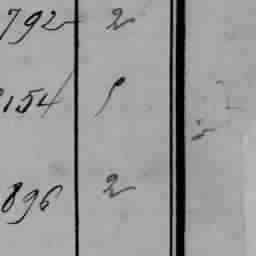 792 2
154 1
896 2